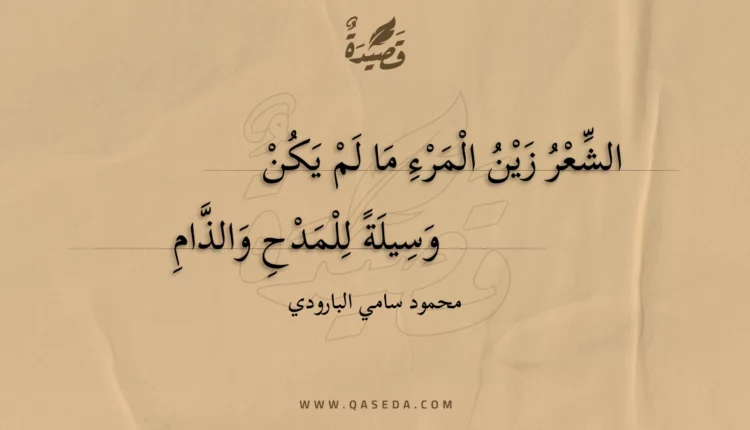 قَصِيْدَةٌ
الشِّعْرُ زَيْنُ الْمَرْءِ مَا لَمْ يَكُنْ
وَسِيلَةً لِلْمَدْحِ وَالذَّامِ
محمود سامي البارودي
WWW.QASEDA.COM